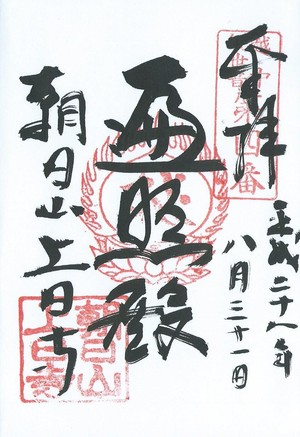 奉拝
平成二十八年
八月三十一日
遍照殿
朝日山上日寺
朝日山
上日寺